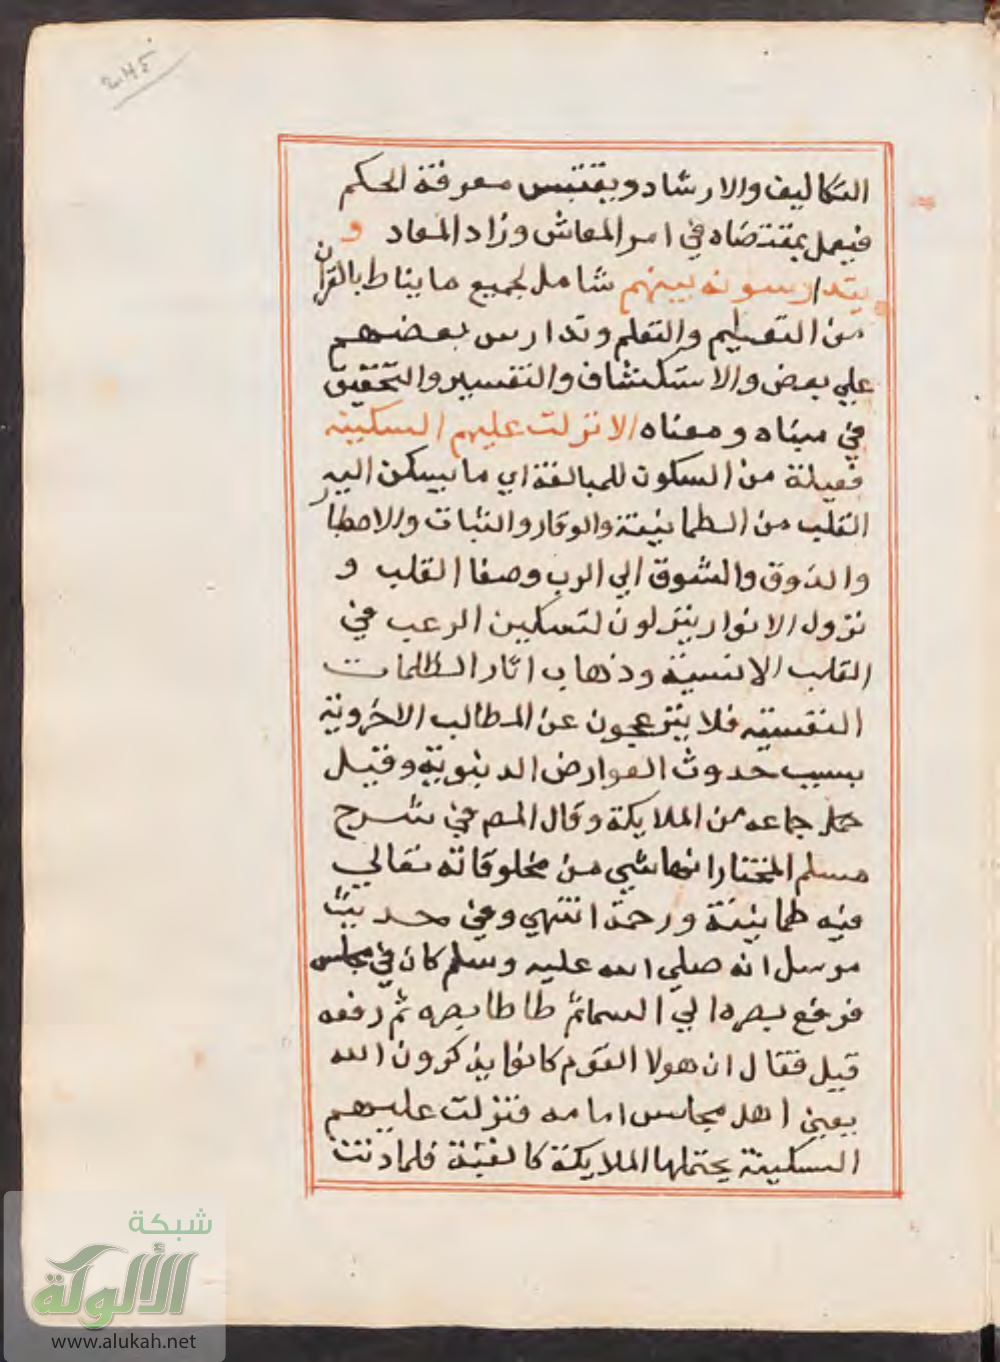 التكاليف والارشاد ويقتبس معرفة الحكم
فيعمل بمقتضاه في امر المعاش وزاد المعاد و
يتدارسونه بينهم شامل لجميع ما يناط بالقران
من التعليم والتعلم وتدارس بعضهم
علي بعض والاستكشاف والتفسير والتحقيق
في مبناه ومعناه الا نزلت عليهم السكينة
فعيلة من السكون للمبالغة اي ما يسكن اليه
القلب من الطمانينة والوقار والثبات والاصطبار
والذوق والشوق الي الرب وصفا القلب و
نزول الانوار ينزلون لتسكين الرعب في
القلب الانسية وذهاب اثار الظلمات
النفسية فلا ينزعجون عن المطالب الاخروية
بسبب حدوث العوارض الدنيوية وقيل
جماعه من الملايكة وقال المص في شرح
مسلم المختار انها شي من مخلوقاته تعالي
فيه طمانينة ورحمة انتهي وفي حديث
مرسل انه صلي الله عليه وسلم كان في مجلس
فرفع بصره الي السما ثم طاطا بصره ثم رفعه
قيل فقال ان هولا القوم كانوا يذكرون الله
يعني اهل مجلس امامه فنزلت عليهم
السكينة يحتملها الملايكة كالقبة فلما دنت
شبكة
الألوكة
www.alukah.net